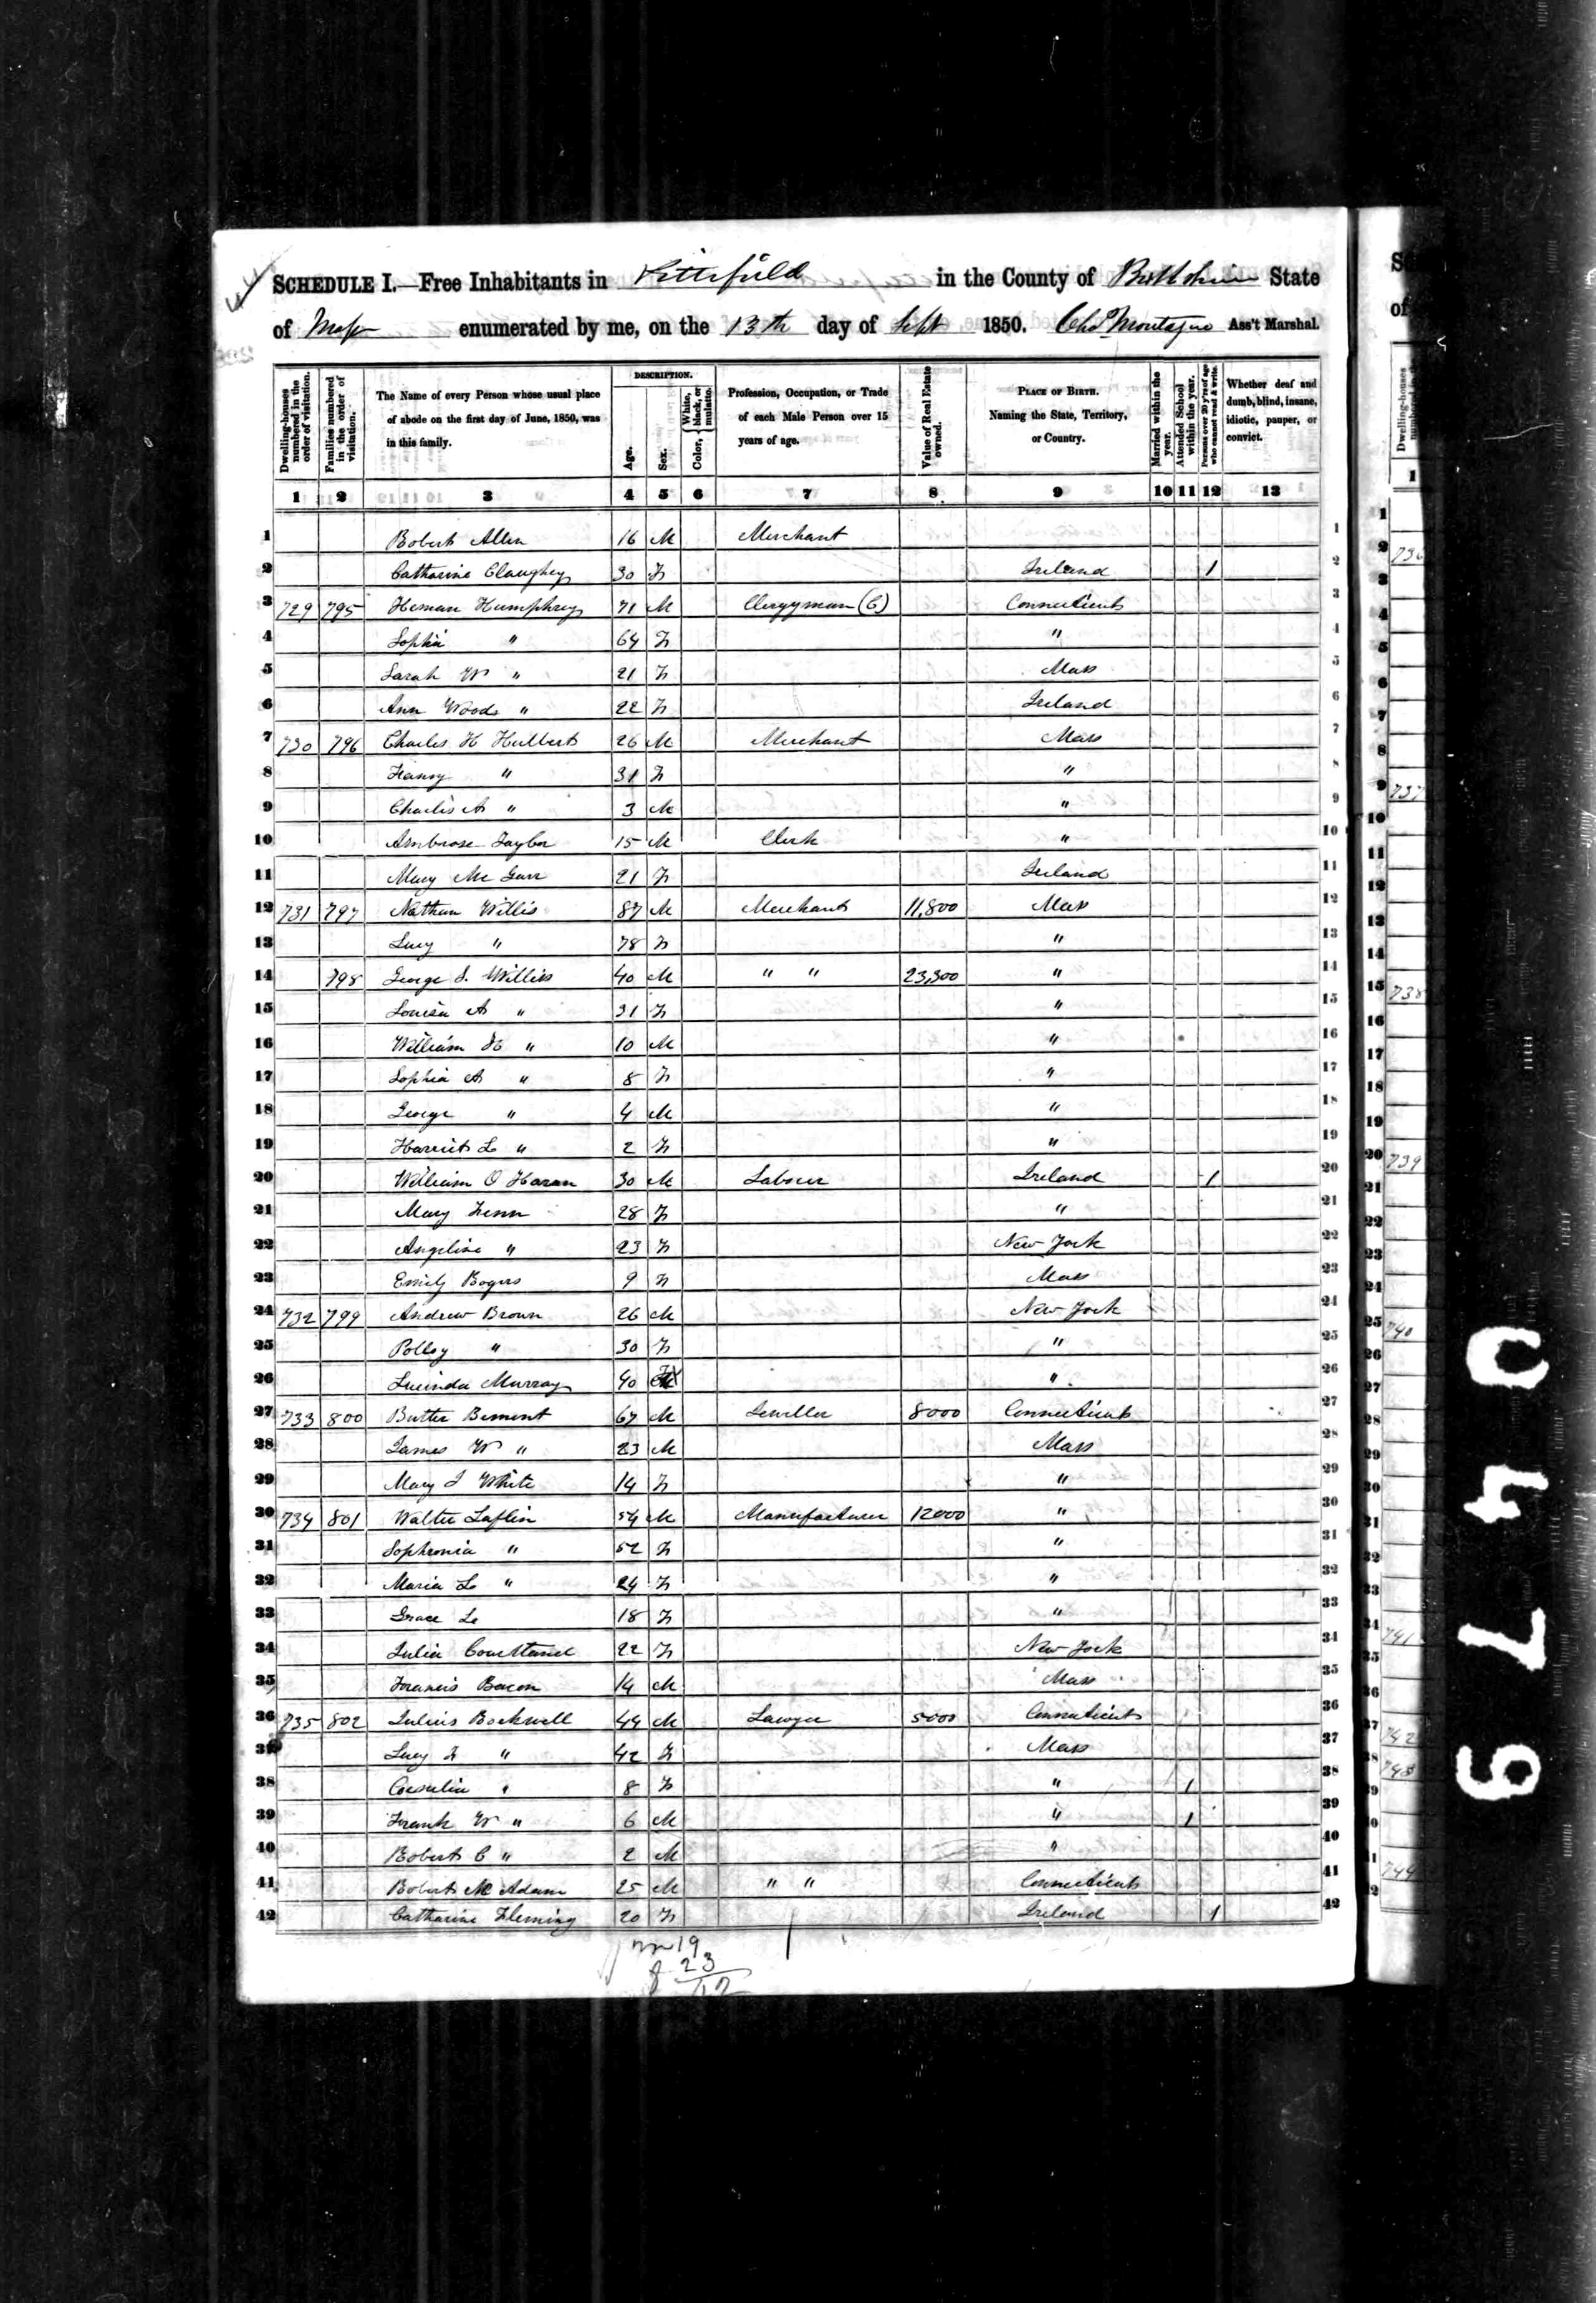 SCHEDULE I.—Free Inhabitants in Pittsfield in the County of Berkshire State
of Mass enumerated by me, on the 13th day of Sept 1850. Chas Montague Ass't Marshal.
Dwelling-houses numbered in the order of visitation.
Families numbered in the order of visitation.
The Name of every Person whose usual place of abode on the first day of June, 1850, was in this family.
DESCRIPTION.
Age.
Sex.
Color, White, black, or mulatto.
Profession, Occupation, or Trade of each Male Person over 15 years of age.
Value of Real Estate owned.
PLACE OF BIRTH. Naming the State, Territory, or Country.
Married within the year.
Attended School within the year.
Persons over 20 y'rs of age who cannot read & write.
Whether deaf and dumb, blind, insane, idiotic, pauper, or convict.
1 2 3 4 5 6 7 8 9 10 11 12 13
1 Robert Allen 16 M Merchant 1
2 Catharine Claughey 30 F Ireland 1 2
3 729 795 Heman Humphrey 71 M Clergyman (C) Connecticut 3
4 Sophia " 64 F " 4
5 Sarah W " 21 F Mass 5
6 Ann Woods " 22 F Ireland 6
7 730 796 Charles H Hulbert 26 M Merchant Mass 7
8 Fanny " 31 F " 8
9 Charles A " 3 M " 9
10 Ambrose Taylor 15 M Clerk " 10
11 Mary Mc Garr 21 F Ireland 11
12 731 797 Nathan Willis 87 M Merchant 11,800 Mass 12
13 Lucy " 78 F " 13
14 798 George S. Willis 40 M " " 23,300 " 14
15 Louisa A " 31 F " 15
16 William H " 10 M " 16
17 Sophia A " 8 F " 17
18 George " 4 M " 18
19 Harriet L " 2 F " 19
20 William O Haran 30 M Labour Ireland 1 20
21 Mary Fenn 28 F " 21
22 Angeline " 23 F New York 22
23 Emily Rogers 9 F Mass 23
24 732 799 Andrew Brown 26 M New York 24
25 Polly " 30 F " 25
26 Lucinda Murray 40 F " 26
27 733 800 Butler Bement 67 M Jeweller 8000 Connecticut 27
28 James W " 23 M Mass 28
29 Mary J White 14 F " 29
30 734 801 Walter Laflin 54 M Manufacturer 12000 " 30
31 Sophronia " 52 F " 31
32 Maria L " 24 F " 32
33 Grace L 18 F " 33
34 Julia Courtland 22 F New York 34
35 Francis Bacon 14 M Mass 35
36 735 802 Julius Rockwell 44 M Lawyer 5000 Connecticut 36
37 Lucy F " 42 F Mass 37
38 Cornelia " 8 F " 1 38
39 Frank W " 6 M " 1 39
40 Robert C " 2 M " 40
41 Robert Mc Adam 25 M " " Connecticut 41
42 Catharine Fleming 20 F Ireland 1 42
m 19
f 23
42
736
737
738
739
740
741
742
743
744
0479